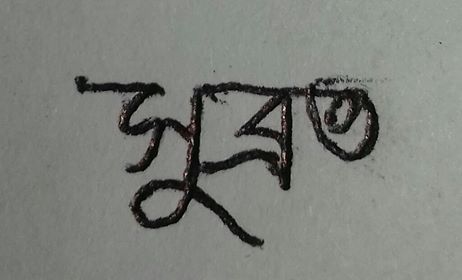 সুব্রত